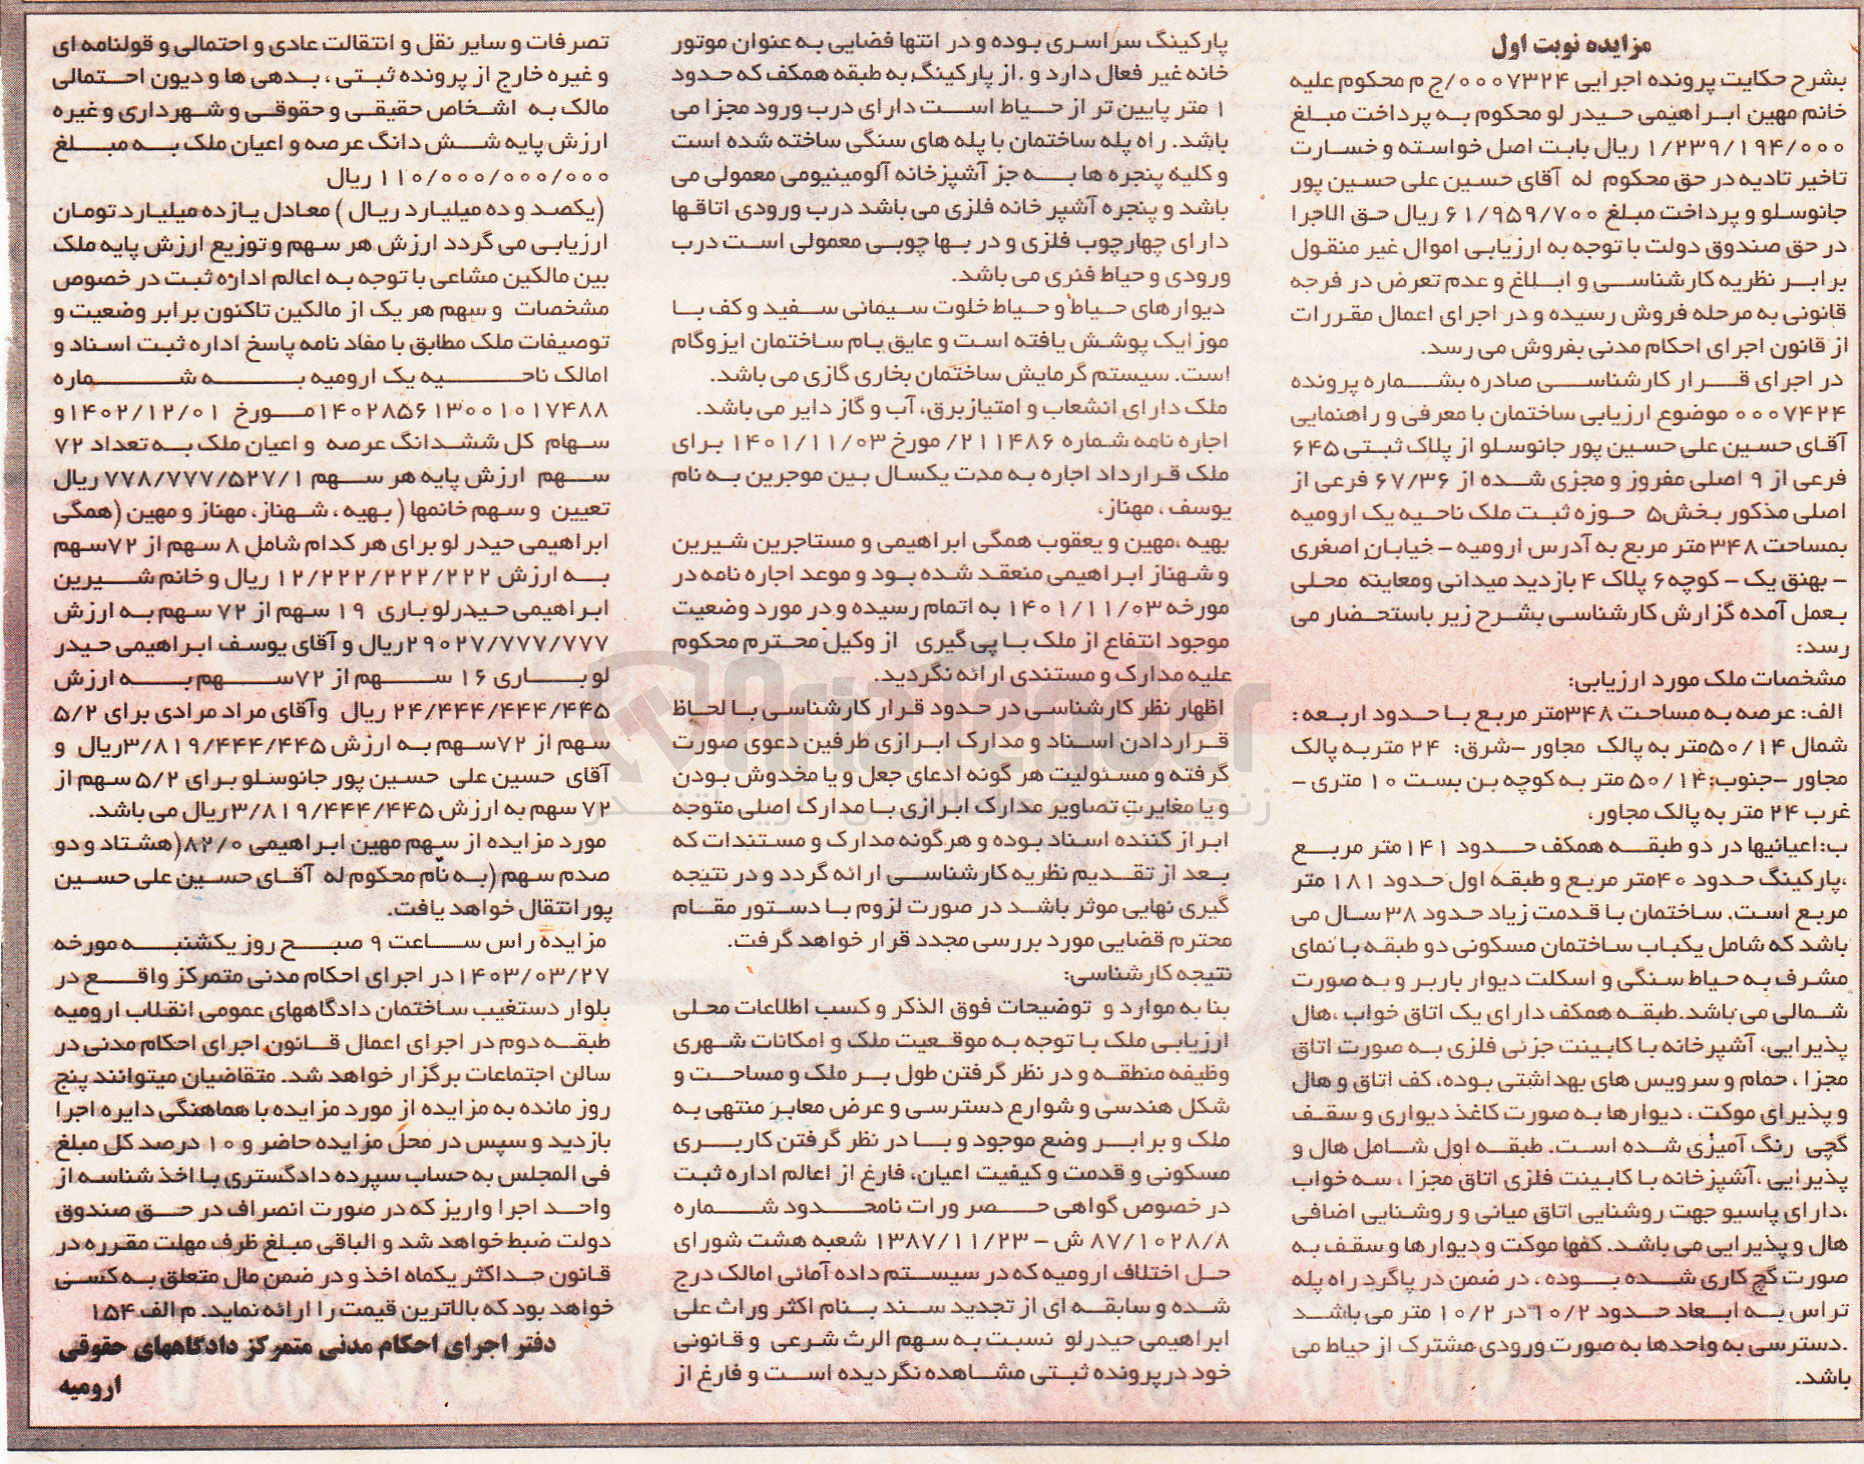 مزایده نوبت اول
بشرح حکایت پرونده اجرایی ۰۰۰۷۳۲۴/ج م محکوم علیه
خانم مهین ابراهیمی حیدر لو محکوم به پرداخت مبلغ
۱/۲۳۹/۱۹۴/۰۰۰ ریال بابت اصل خواسته و خسارت
تاخیر تادیه در حق محکوم له آقای حسین علی حسین پور
جانوسلو و پرداخت مبلغ ۶۱/۹۵۹/۷۰۰ ریال حق الاجرا
در حق صندوق دولت با توجه به ارزیابی اموال غیر منقول
برابر نظریه کارشناسی و ابلاغ و عدم تعرض در فرجه
قانونی به مرحله فروش رسیده و در اجرای اعمال مقررات
از قانون اجرای احکام مدنی بفروش می رسد.
در اجرای قرار کارشناسی صادره بشماره پرونده
۰۰۰۷۴۲۴ موضوع ارزیابی ساختمان با معرفی و راهنمایی
آقای حسین علی حسین پور جانوسلو از پلاک ثبتی ۶۴۵
فرعی از ۹ اصلی مفروز و مجزی شده از ۶۷/۳۶ فرعی از
اصلی مذکور بخش۵ حوزه ثبت ملک ناحیه یک ارومیه
بمساحت ۳۴۸ متر مربع به آدرس ارومیه - خیابان اصغری
- بهنق یک - کوچه۶ پلاک ۴ بازدید میدانی ومعاینه محلی
بعمل آمده گزارش کارشناسی بشرح زیر باستحضار می
رسد:
مشخصات ملک مورد ارزیابی:
الف: عرصه به مساحت ۳۴۸متر مربع با حدود اربعه :
شمال ۵۰/۱۴متر به پالک مجاور -شرق: ۲۴ متربه پالک
مجاور -جنوب: ۵۰/۱۴ متر به کوچه بن بست ۱۰ متری -
غرب ۲۴ متر به پالک مجاور،
ب:اعیانیها در دو طبقه همکف حدود ۱۴۱ متر مربع
،پارکینگ حدود ۴۰متر مربع و طبقه اول حدود ۱۸۱ متر
مربع است. ساختمان با قدمت زیاد حدود ۳۸ سال می
باشد که شامل یکباب ساختمان مسکونی دو طبقه با نمای
مشرف به حیاط سنگی و اسکلت دیوار باربر و به صورت
شمالی می باشد.طبقه همکف دارای یک اتاق خواب ،هال
پذیرایی، آشپرخانه با کابینت جزئی فلزی به صورت اتاق
مجزا ، حمام و سرویس های بهداشتی بوده، کف اتاق و هال
و پذیرای موکت ، دیوارها به صورت کاغذ دیواری و سقف
گچی رنگ آمیزی شده است. طبقه اول شامل هال و
پذیرایی ،آشپزخانه با کابینت فلزی اتاق مجزا ، سه خواب
،دارای پاسیو جهت روشنایی اتاق میانی و روشنایی اضافی
هال و پذیرایی می باشد. کفها موکت و دیوارها و سقف به
صورت گچ کاری شده بوده ، در ضمن در پاگرد راه پله
تراس به ابعاد حدود ۱۰/۲ در ۱۰/۲ متر می باشد
.دسترسی به واحدها به صورت ورودی مشترک از حیاط می
باشد.
پارکینگ سراسری بوده و در انتها فضایی به عنوان موتور
خانه غیر فعال دارد و .از پارکینگ به طبقه همکف که حدود
۱ متر پایین تر از حیاط است دارای درب ورود مجزا می
باشد. راه پله ساختمان با پله های سنگی ساخته شده است
و کلیه پنجره ها به جز آشپزخانه آلومینیومی معمولی می
باشد و پنجره آشپر خانه فلزی می باشد درب ورودی اتاقها
دارای چهارچوب فلزی و در بها چوبی معمولی است درب
ورودی و حیاط فنری می باشد.
دیوارهای حیاط و حیاط خلوت سیمانی سفید و کف با
موزایک پوشش یافته است و عایق بام ساختمان ایزوگام
است. سیستم گرمایش ساختمان بخاری گازی می باشد.
ملک دارای انشعاب و امتیازبرق، آب و گاز دایر می باشد.
اجاره نامه شماره ۲۱۱۴۸۶/ مورخ ۱۴۰۱/۱۱/۰۳ برای
ملک قرارداد اجاره به مدت یکسال بین موجرین به نام
یوسف ، مهناز،
بهیه ،مهین و یعقوب همگی ابراهیمی و مستاجرین شیرین
و شهناز ابراهیمی منعقد شده بود و موعد اجاره نامه در
مورخه ۱۴۰۱/۱۱/۰۳ به اتمام رسیده و در مورد وضعیت
موجود انتفاع از ملک با پی گیری از وکیل محترم محکوم
علیه مدارک و مستندی ارائه نگردید.
اظهار نظر کارشناسی در حدود قرار کارشناسی با لحاظ
قراردادن اسناد و مدارک ابرازی طرفین دعوی صورت
گرفته و مسئولیت هر گونه ادعای جعل و یا مخدوش بودن
و یا مغایرت تصاویر مدارک ابرازی با مدارک اصلی متوجه
ابراز کننده اسناد بوده و هرگونه مدارک و مستندات که
بعد از تقدیم نظریه کارشناسی ارائه گردد و در نتیجه
گیری نهایی موثر باشد در صورت لزوم با دستور مقام
محترم قضایی مورد بررسی مجدد قرار خواهد گرفت.
نتیجه کارشناسی:
بنا به موارد و توضیحات فوق الذکر و کسب اطلاعات محلی
ارزیابی ملک با توجه به موقعیت ملک و امکانات شهری
وظیفه منطقه و در نظر گرفتن طول بر ملک و مساحت و
شکل هندسی و شوارع دسترسی و عرض معابر منتهی به
ملک و برابر وضع موجود و با در نظر گرفتن کاربری
مسکونی و قدمت و کیفیت اعیان، فارغ از اعالم اداره ثبت
در خصوص گواهی حصر وراث نامحدود شماره
۸۷/۱۰۲۸/۸ ش - ۱۳۸۷/۱۱/۲۳ شعبه هشت شورای
حل اختلاف ارومیه که در سیستم داده آمائی امالک درج
شده و سابقه ای از تجدید سند بنام اکثر وراث علی
ابراهیمی حیدرلو نسبت به سهم الرث شرعی و قانونی
خود در پرونده ثبتی مشاهده نگردیده است و فارغ از
تصرفات و سایر نقل و انتقالت عادی و احتمالی و قولنامه ای
و غیره خارج از پرونده ثبتی ، بدهی ها و دیون احتمالی
مالک به اشخاص حقیقی و حقوقی و شهرداری و غیره
ارزش پایه شش دانگ عرصه و اعیان ملک به مبلغ
۱۱۰/۰۰۰/۰۰۰/۰۰۰ ریال
(یکصد و ده میلیارد ریال ) معادل یازده میلیارد تومان
ارزیابی می گردد ارزش هر سهم و توزیع ارزش پایه ملک
بین مالکین مشاعی با توجه به اعالم اداره ثبت در خصوص
مشخصات و سهم هر یک از مالکین تاکنون برابر وضعیت و
توصیفات ملک مطابق با مفاد نامه پاسخ اداره ثبت اسناد و
امالک ناحیه یک ارومیه به شماره
۱۴۰۲۸۵۶۱۳۰۰۱۰۱۷۴۸۸مورخ ۱۴۰۲/۱۲/۰۱و
سهام کل ششدانگ عرصه و اعیان ملک به تعداد ۷۲
سهم ارزش پایه هر سهم ۷۷۸/۷۷۷/۵۲۷/۱ ریال
تعیین و سهم خانمها ( بهیه ، شهناز، مهناز و مهین (همگی
ابراهیمی حیدر لو برای هر کدام شامل ۸ سهم از ۷۲سهم
به ارزش ۱۲/۲۲۲/۲۲۲/۲۲۲ ریال و خانم شیرین
ابراهیمی حیدرلو باری ۱۹ سهم از ۷۲ سهم به ارزش
۲۹۰۲۷/۷۷۷/۷۷۷ریال و آقای یوسف ابراهیمی حیدر
لو باری ۱۶ سهم از ۷۲سهم به ارزش
۲۴/۴۴۴/۴۴۴/۴۴۵ ریال وآقای مراد مرادی برای ۵/۲
سهم از ۷۲سهم به ارزش ۳/۸۱۹/۴۴۴/۴۴۵ریال و
آقای حسین علی حسین پور جانوسلو برای ۵/۲ سهم از
۷۲ سهم به ارزش ۳/۸۱۹/۴۴۴/۴۴۵ریال می باشد.
مورد مزایده از سهم مهین ابراهیمی ۸۲/۰(هشتاد و دو
صدم سهم (به نام محکوم له آقای حسین علی حسین
پور انتقال خواهد یافت.
مزایده راس ساعت ۹ صبح روز یکشنبه مورخه
۱۴۰۳/۰۳/۲۷در اجرای احکام مدنی متمرکز واقع در
بلوار دستغیب ساختمان دادگاههای عمومی انقلاب ارومیه
طبقه دوم در اجرای اعمال قانون اجرای احکام مدنی در
سالن اجتماعات برگزار خواهد شد. متقاضیان میتوانند پنج
روز مانده به مزایده از مورد مزایده با هماهنگی دایره اجرا
بازدید و سپس در محل مزایده حاضر و ۱۰ درصد کل مبلغ
فی المجلس به حساب سپرده دادگستری با اخذ شناسه از
واحد اجرا واریز که در صورت انصراف در حق صندوق
دولت ضبط خواهد شد و الباقی مبلغ ظرف مهلت مقرره در
قانون حداکثر یکماه اخذ و در ضمن مال متعلق به کسی
خواهد بود که بالاترین قیمت را ارائه نماید. م الف ۱۵۴
دفتر اجرای احکام مدنی متمرکز دادگاههای حقوقی
ارومیه
AriaTender